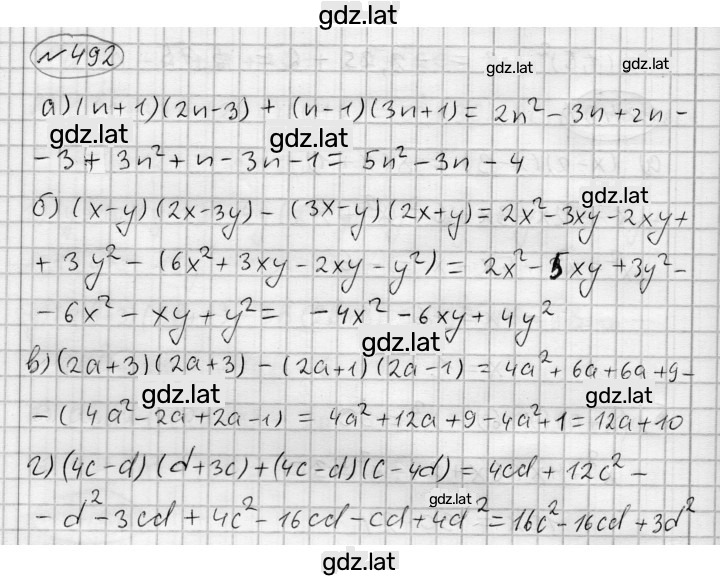 gdz.lat
№ 492
gdz.lat gdz.lat
а) (n+1)(2n-3) + (n-1)(3n+1) = 2n² - 3n + 2n -
gdz.lat gdz.lat
- 3 + 3n² + n - 3n - 1 = 5n² - 3n - 4
gdz.lat
б) (x-y)(2x-3y) - (3x-y)(2x+y) = 2x² - 3xy - 2xy +
+ 3y² - (6x² + 3xy - 2xy - y²) = 2x² - 5xy + 3y² -
- 6x² - xy + y² = - 4x² - 6xy + 4y²
gdz.lat
в) (2a+3)(2a+3) - (2a+1)(2a-1) = 4a² + 6a + 6a + 9 -
gdz.lat gdz.lat
- (4a² - 2a + 2a - 1) = 4a² + 12a + 9 - 4a² + 1 = 12a + 10
г) (4c-d)(d+3c) + (4c-d)(c-4d) = 4cd + 12c² -
gdz.lat
- d² - 3cd + 4c² - 16cd - cd + 4d² = 16c² - 16cd + 3d²
gdz.lat